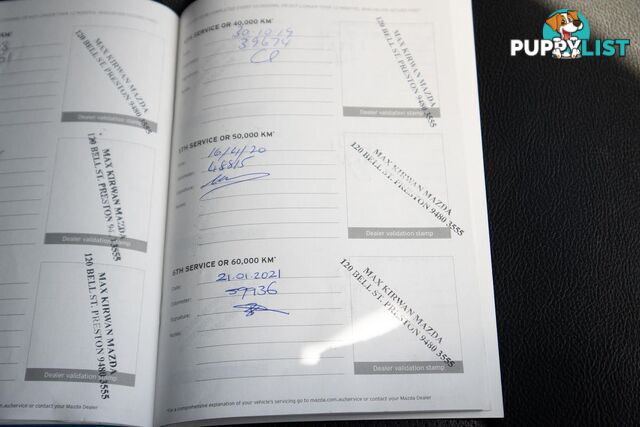 PUPPYLIST
KM*
MAX KIRWAN MAZDA
120 BELL ST. PRESTON 9480 3555
Dealer validation stamp
MAX KIRWAN MAZDA
120 BELL ST. PRESTON 9480 3555
Dealer validation stamp
MAX KIRWAN MAZDA
120 BELL ST. PRESTON 9480 3555
Dealer validation stamp
SERVICE OR 40,000 KM*
30.10.19
39674
MAX KIRWAN MAZDA
BELL ST. PRESTON 9480
Dealer validation stamp
5TH SERVICE OR 50,000 KM*
Date: 16/4/20
48815
Signature:
Notes:
MAX KIRWAN MAZDA
120 BELL ST. PRESTON 9480 3555
Dealer validation stamp
6TH SERVICE OR 60,000 KM*
Date: 21.01.2021
Odometer: 59936
Signature:
Notes:
MAX KIRWAN MAZDA
120 BELL ST. PRESTON 9480 3555
Dealer validation stamp
*For a comprehensive explanation of your vehicle's servicing go to mazda.com.au/service or contact your Mazda Dealer